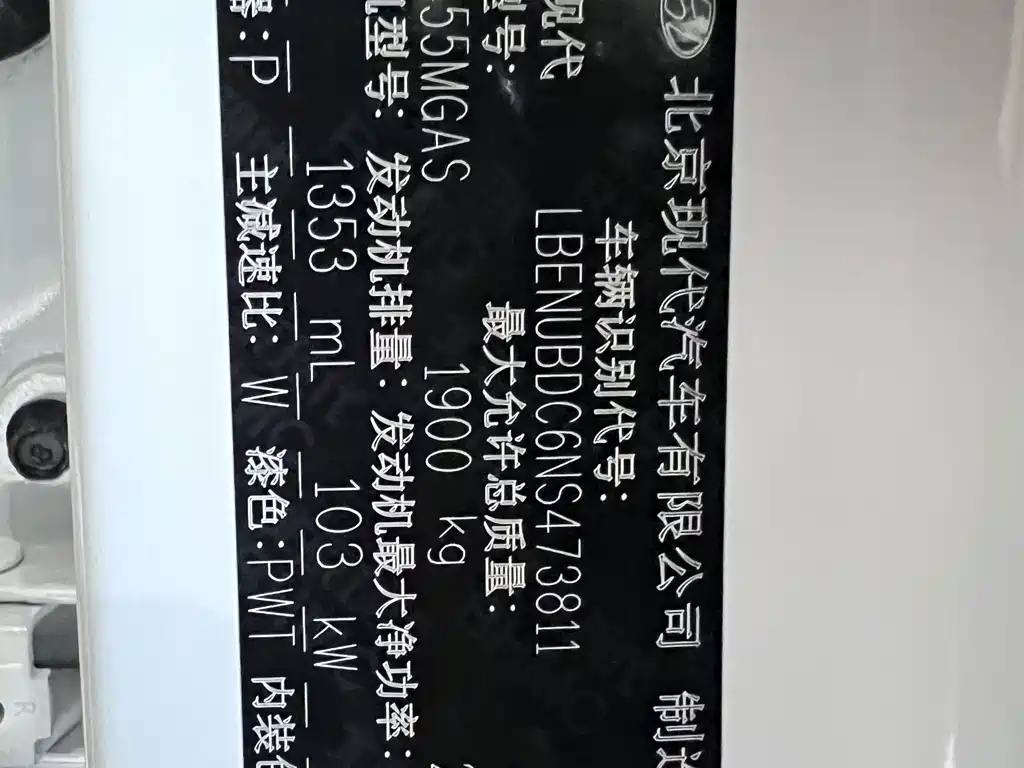 北京现代汽车有限公司 制造
车辆识别代号:
现代 LBENUBDC6NS473811
型号: 最大允许总质量:
55MGAS 1900 kg
机型号: 发动机排量: 发动机最大净功率:
1353 mL 103 kW
器:P 主减速比: W 漆色:PWT 内装色